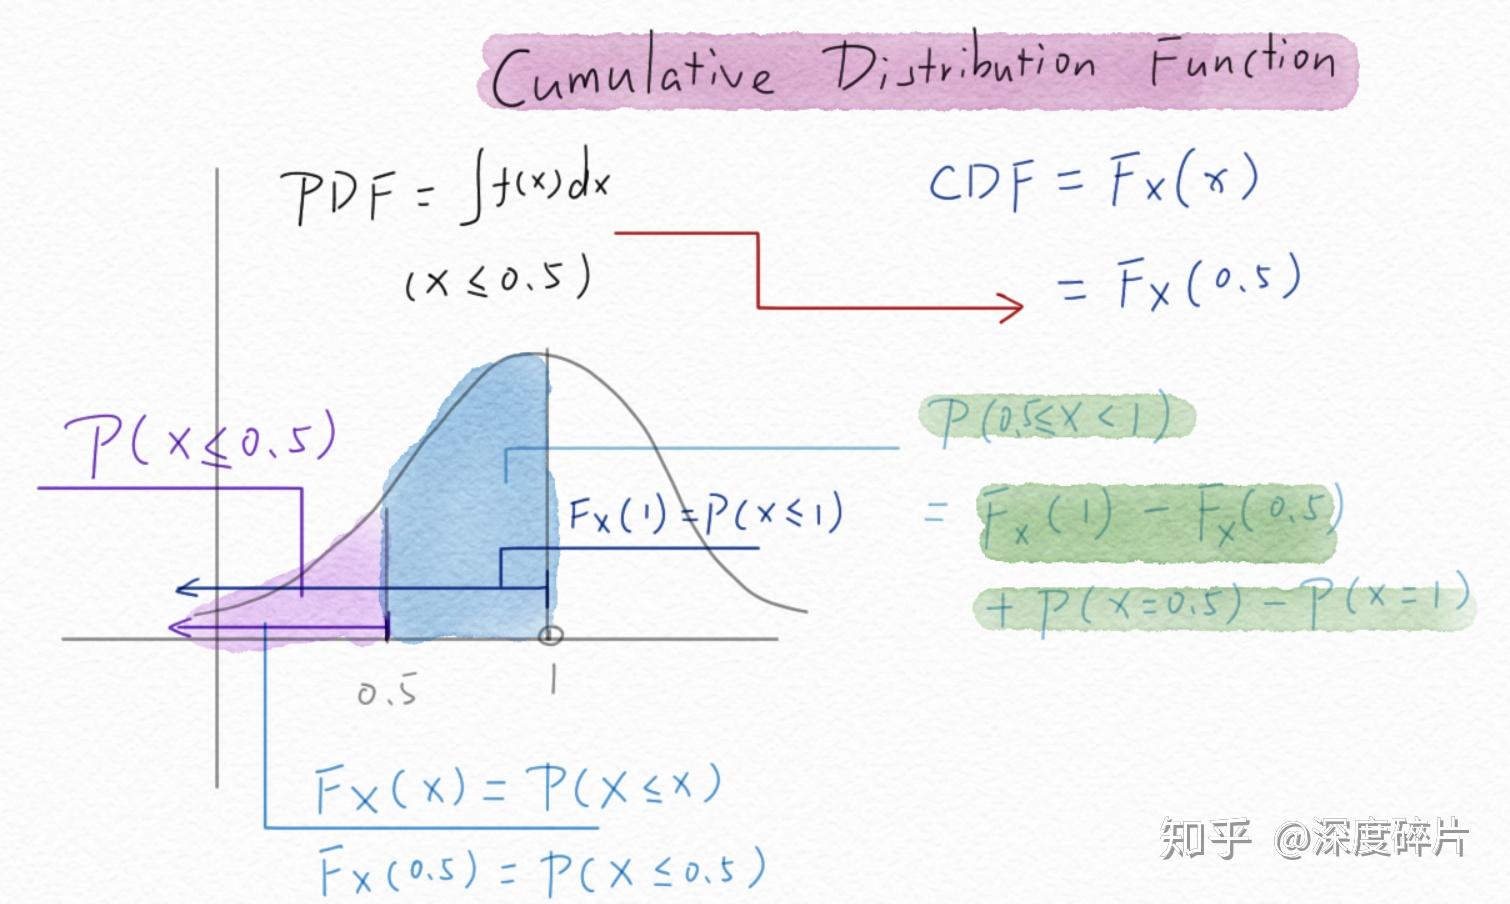 Cumulative Distribution Function
PDF = ∫f(x)dx
(x ≤ 0.5)
CDF = Fx(x)
= Fx(0.5)
P(x≤0.5)
P(0.5≤x<1)
= Fx(1) - Fx(0.5)
+ P(x=0.5) - P(x=1)
Fx(1)=P(x≤1)
0.5
1
Fx(x) = P(X≤x)
Fx(0.5) = P(X≤0.5)
知乎 @深度碎片